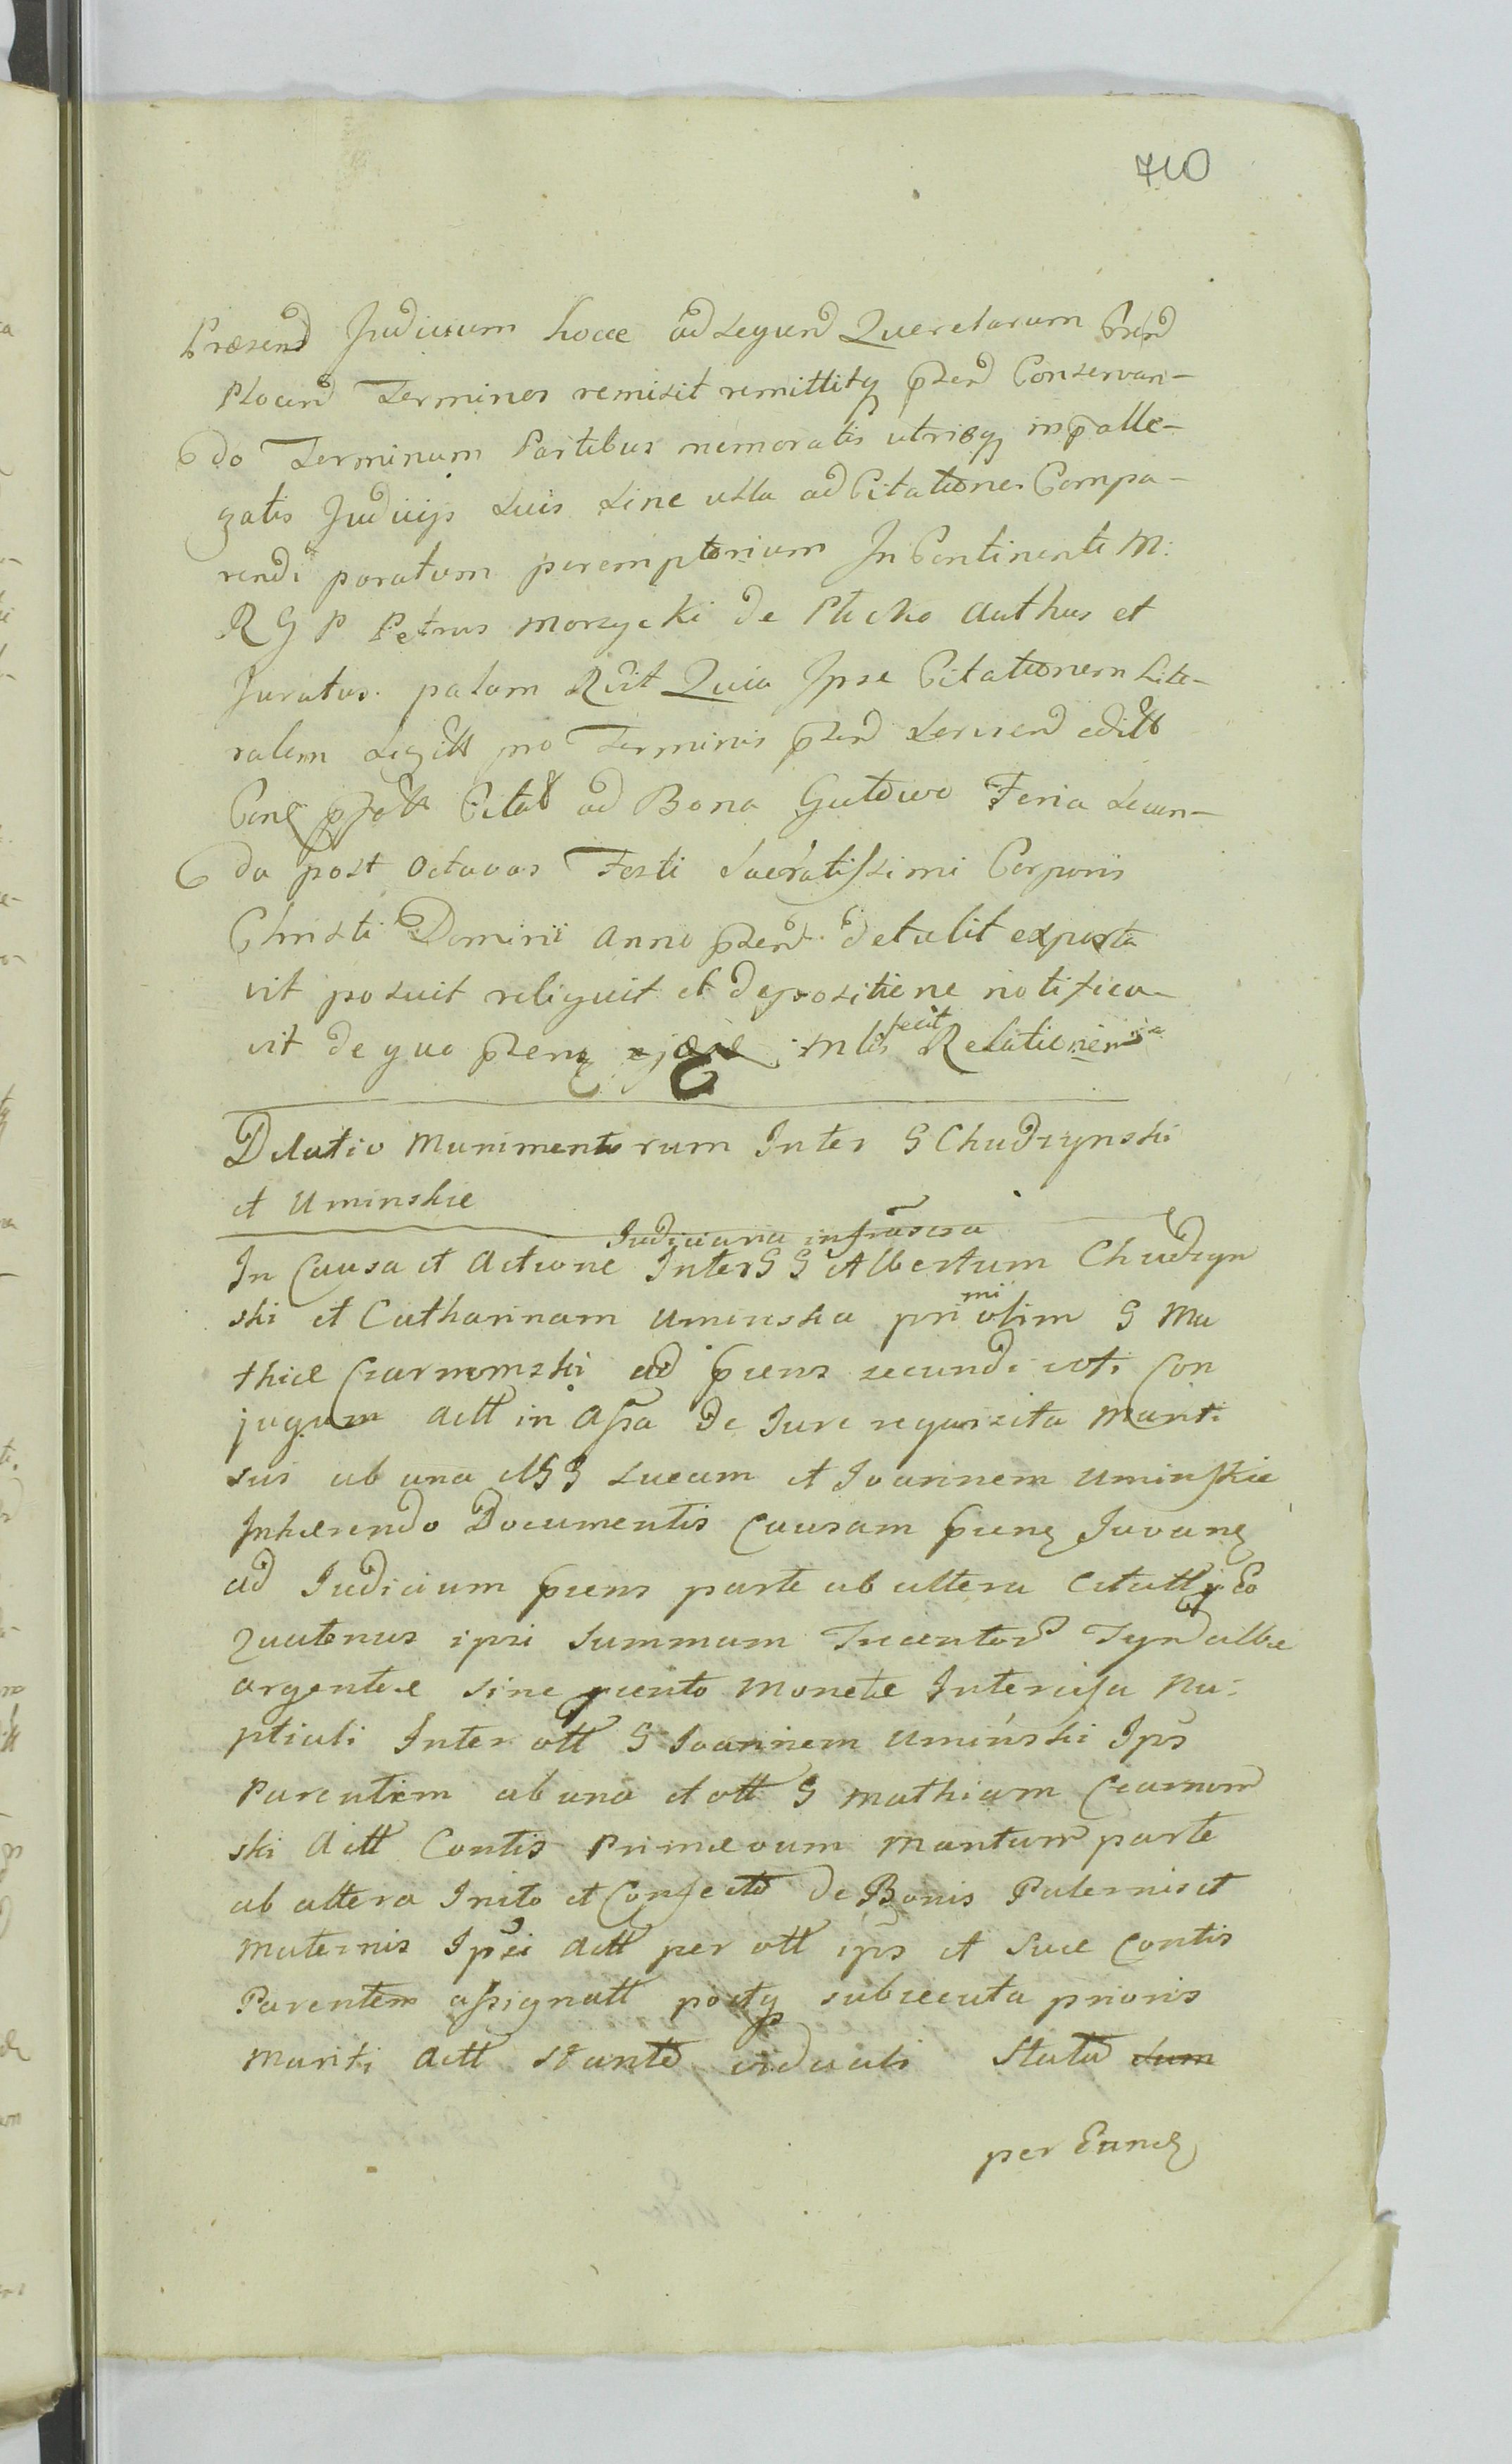 710
Præsend Judicium hocce ad Legend Querelarum Grnd
Plocend Terminos remisit remittitq pSend Conservan-
do Terminum Partibus memoratis utrisq in palle-
gatis Judicijs Suis Sine ulla ad Citationes Compa-
rendi paratum peremptorium In Continenti M:
R G P Petrus Morzycki de Plicko Authus et
Juratus palam Rdit Quia Ipse Citationem Lite-
ralem Legitt pro Terminis pSend Serviend edit
Citat ad Bona Gutowo Feria Secun-
da post Octavas Festi Sacratissimi Corporis
Christi Domini Anno pSend detulit exporta
vit posuit reliquit et depositione notifica-
vit de quo pSenq Mlis fecit Relationem
Dilatio Munimentorum Inter G Chudzynski
et Uminskie
Judiciaria infrascra
In Causa et Actione Inter G G Albertum Chudzyn
ski et Catharinam Uminska primi olim G Ma
thiæ Czarnomski ad præns secundi voti Con
jugum Actt in Assa de Jure requisita Mariti
sui ab una et G G Lucam et Joannem Uminskie
Inhærendo Documentis Causam præns Juvanq
ad Judicium præns parte ab altera Citatt eo
Quatenus ipsi Summam Tricentor Tynf albæ
argenteæ sine Monetæ Intercisa Nu-
ptiali Inter ott G Joannem Uminski Ips
Parentem ab una et ott G Mathiam Czarnom
ski Actt Contis Primævum Maritum parte
ab altera Inito et Confecto de Bonis Paternis et
Maternis Ipsi Actt per ott ips et Suæ Contis
Parentem assignatt postq subsecuta prioris
Mariti Actt stante viduali Statu sum
per Eunq